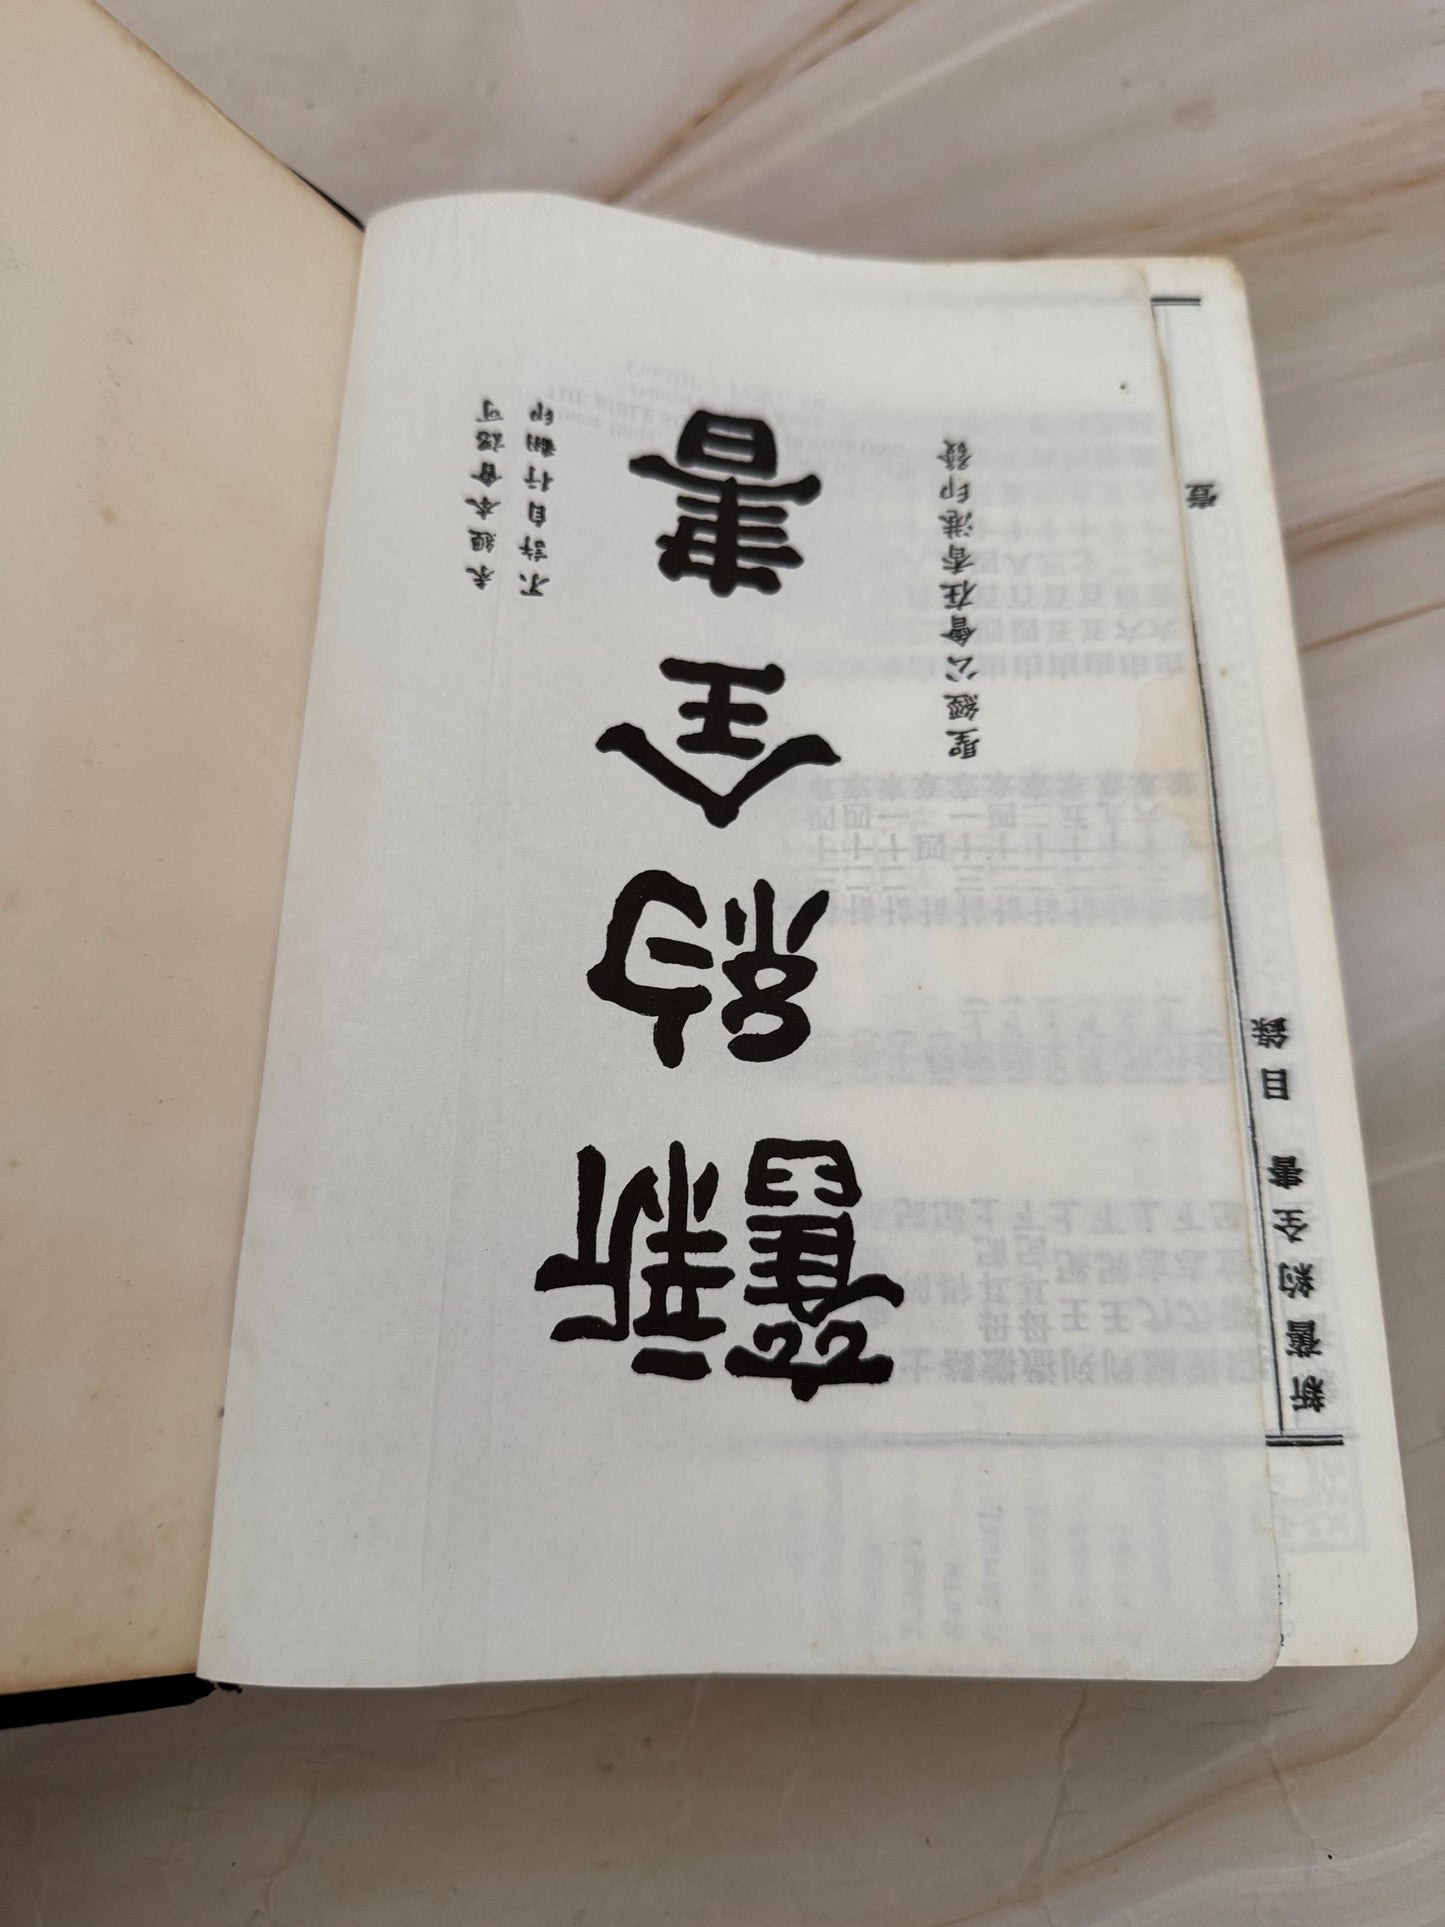 未經本會認可
不許自行翻印
新舊約全書
聖經公會在香港印發
新舊約全書 目錄 壹